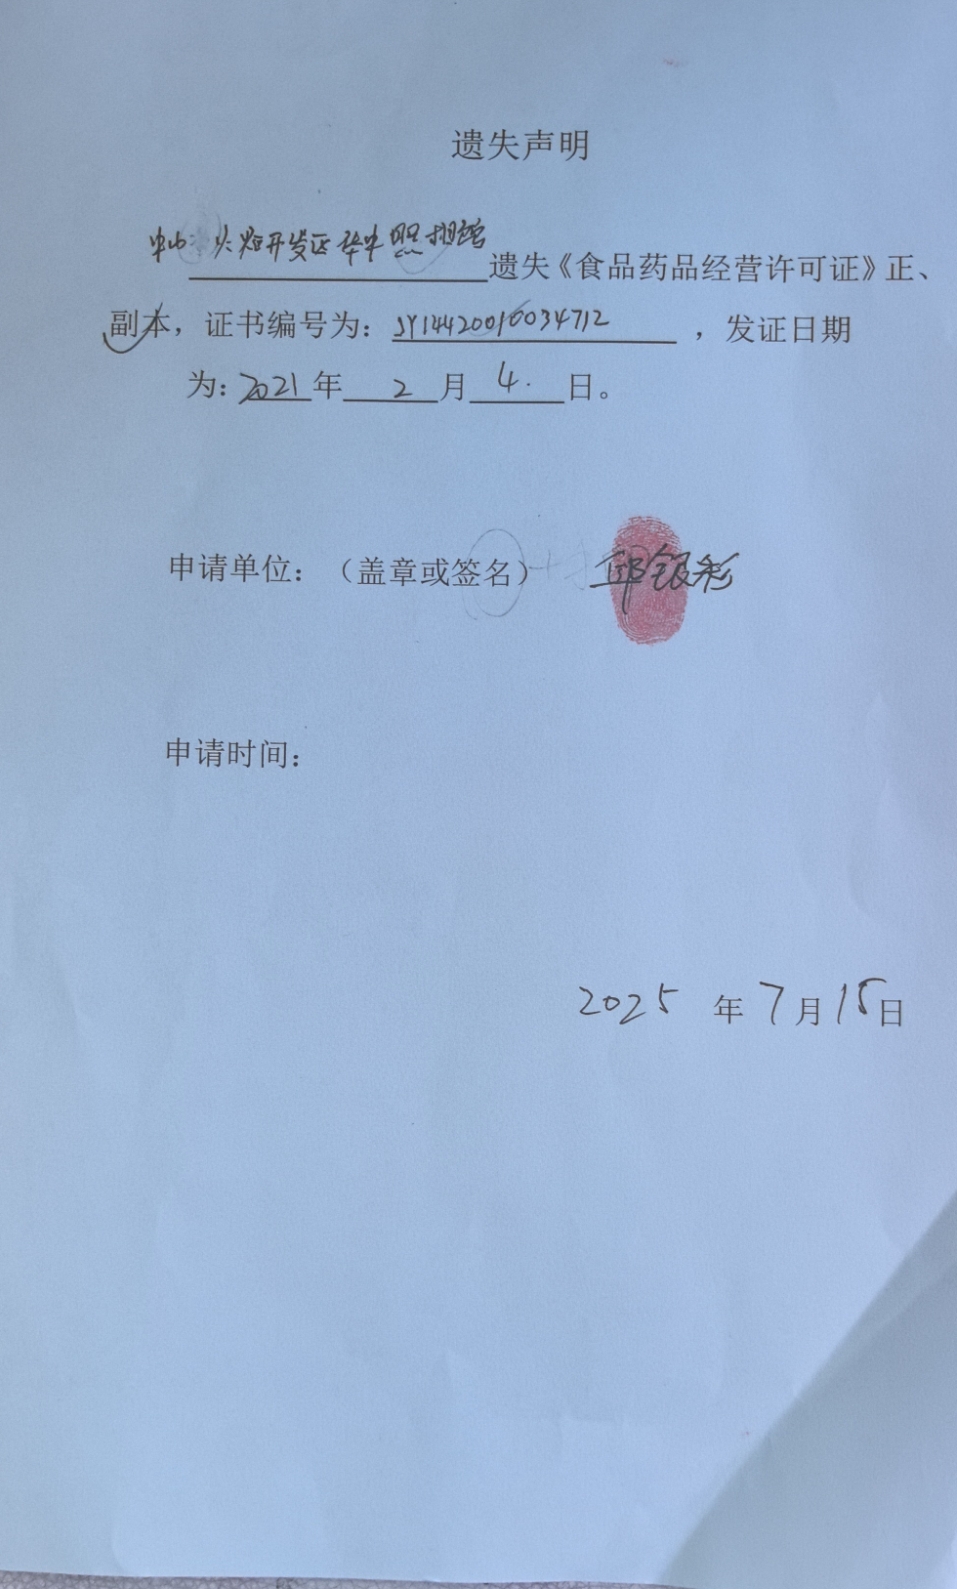 遗失声明
中山火炬开发区华中照相馆遗失《食品药品经营许可证》正、
副本，证书编号为：JY14420016034712，发证日期
为：2021年2月4.日。
申请单位：（盖章或签名）邱银彩
申请时间：
2025年7月15日